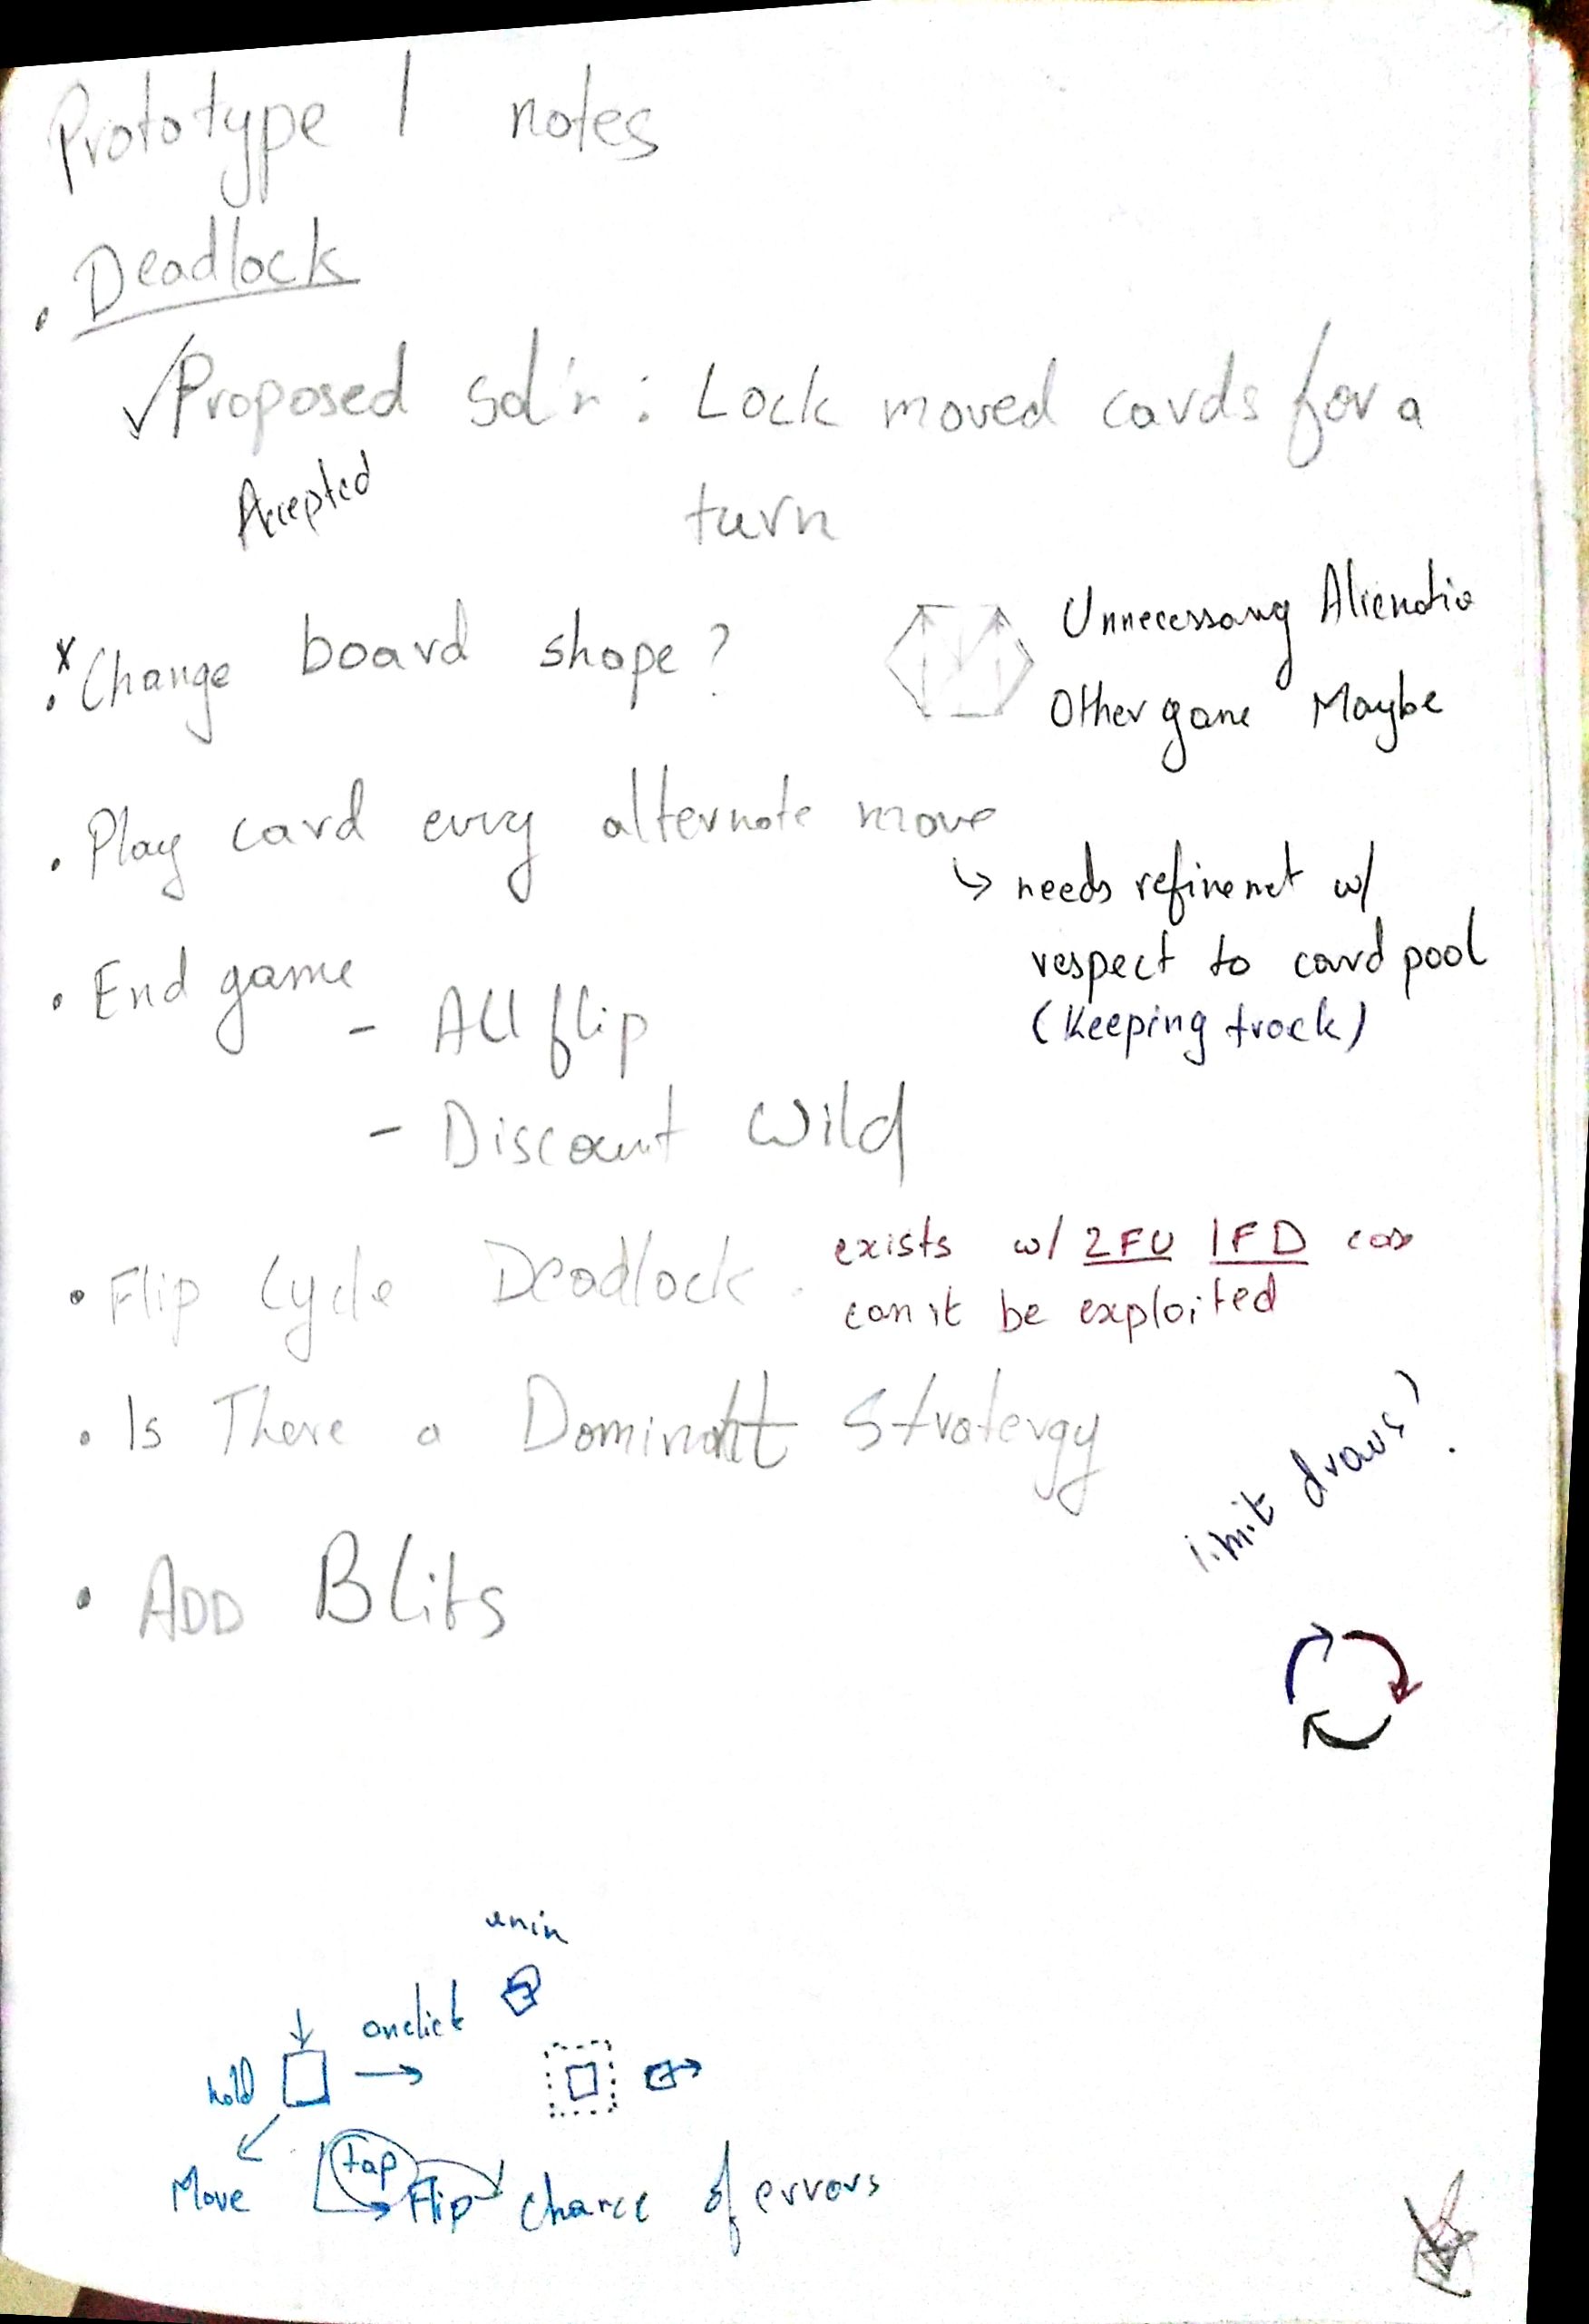 Prototype 1 notes
. Deadlock
✓Proposed Sol'n : Lock moved cards for a
turn
Accepted
x
. Change board shape?
Unnecessary Alienatio
Other game Maybe
. Play card every alternate move
↳ needs refinemet w/
respect to card pool
(Keeping track)
. End game
- All flip
- Discount Wild
• Flip Cycle Deadlock.
exists w/ 2FU 1FD cas
can it be exploited
• Is There a Dominatt Stratergy
limit draws?
• ADD Blits
onclick
hold
Move
tap
Flip
Chance of errors